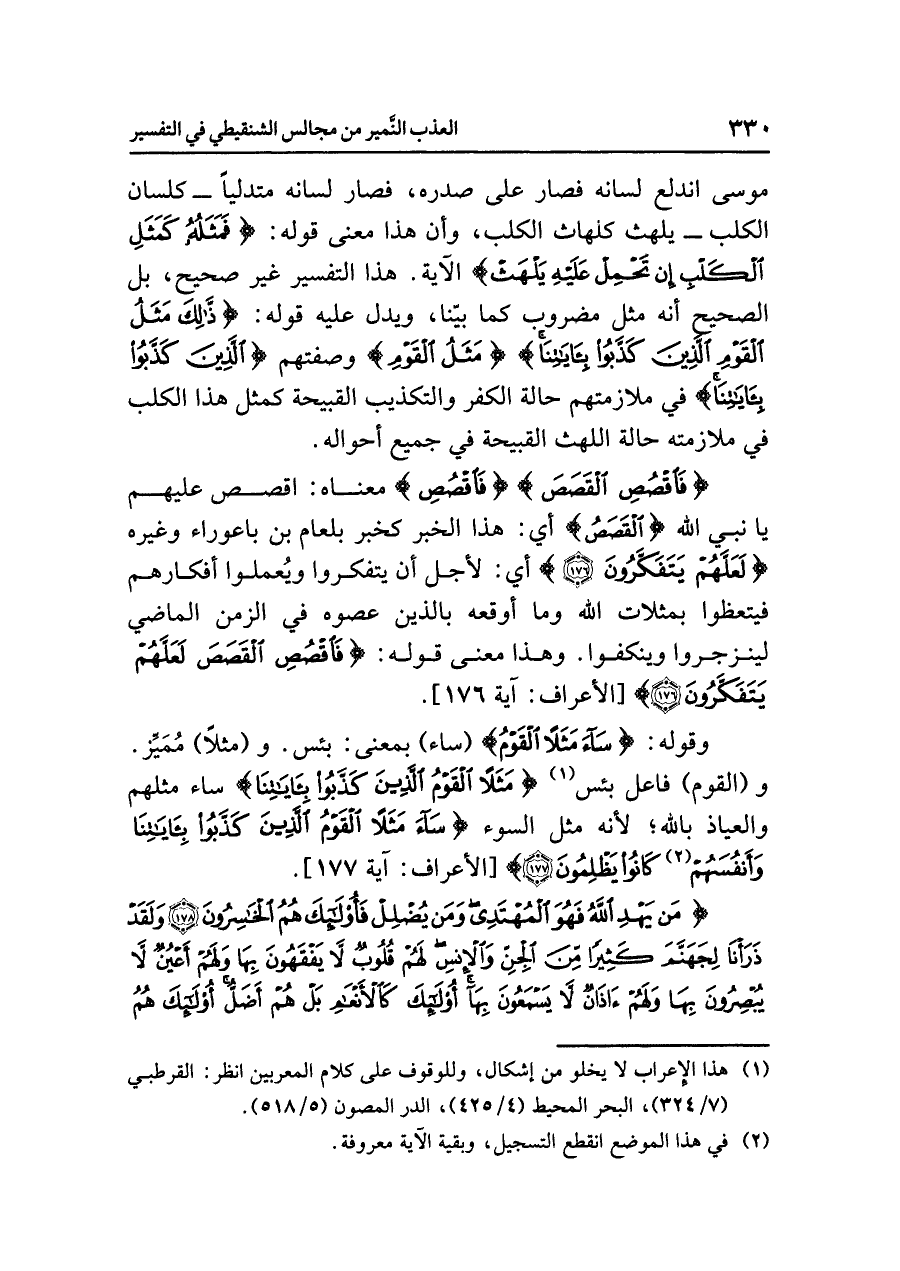 ٣٣٠ العذب النَّمير من مجالس الشنقيطي في التفسير
موسى اندلع لسانه فصار على صدره، فصار لسانه متدلياً ــ كلسان
الكلب ــ يلهث كلهاث الكلب، وأن هذا معنى قوله: ﴿ فَمَثَلُهُۥ كَمَثَلِ
ٱلْكَلْبِ إِن تَحْمِلْ عَلَيْهِ يَلْهَثْ﴾ الآية. هذا التفسير غير صحيح، بل
الصحيح أنه مثل مضروب كما بيّنا، ويدل عليه قوله: ﴿ ذَّٰلِكَ مَثَلُ
ٱلْقَوْمِ ٱلَّذِينَ كَذَّبُوا۟ بِـَٔايَـٰتِنَا ۚ﴾ ﴿ مَثَلُ ٱلْقَوْمِ ﴾ وصفتهم ﴿ ٱلَّذِينَ كَذَّبُوا۟
بِـَٔايَـٰتِنَا ۚ﴾ في ملازمتهم حالة الكفر والتكذيب القبيحة كمثل هذا الكلب
في ملازمته حالة اللهث القبيحة في جميع أحواله.
﴿ فَٱقْصُصِ ٱلْقَصَصَ ﴾ ﴿ فَٱقْصُصِ ﴾ معناه: اقصص عليهم
يا نبي الله ﴿ ٱلْقَصَصَ ﴾ أي: هذا الخبر كخبر بلعام بن باعوراء وغيره
﴿ لَعَلَّهُمْ يَتَفَكَّرُونَ ١٧٦ ﴾ أي: لأجل أن يتفكروا ويُعملوا أفكارهم
فيتعظوا بمثلات الله وما أوقعه بالذين عصوه في الزمن الماضي
لينزجروا وينكفوا. وهذا معنى قوله: ﴿ فَٱقْصُصِ ٱلْقَصَصَ لَعَلَّهُمْ
يَتَفَكَّرُونَ ١٧٦﴾ [الأعراف: آية ١٧٦].
وقوله: ﴿ سَآءَ مَثَلًا ٱلْقَوْمُ ﴾ (ساء) بمعنى: بئس. و (مثلاً) مُمَيِّز.
و (القوم) فاعل بئس(١) ﴿ مَثَلًا ٱلْقَوْمُ ٱلَّذِينَ كَذَّبُوا۟ بِـَٔايَـٰتِنَا ﴾ ساء مثلهم
والعياذ بالله؛ لأنه مثل السوء ﴿ سَآءَ مَثَلًا ٱلْقَوْمُ ٱلَّذِينَ كَذَّبُوا۟ بِـَٔايَـٰتِنَا
وَأَنفُسَهُمْ(٢) كَانُوا۟ يَظْلِمُونَ ١٧٧﴾ [الأعراف: آية ١٧٧].
﴿ مَن يَهْدِ ٱللَّهُ فَهُوَ ٱلْمُهْتَدِى ۖ وَمَن يُضْلِلْ فَأُو۟لَـٰٓئِكَ هُمُ ٱلْخَـٰسِرُونَ ١٧٨ وَلَقَدْ
ذَرَأْنَا لِجَهَنَّمَ كَثِيرًا مِّنَ ٱلْجِنِّ وَٱلْإِنسِ ۖ لَهُمْ قُلُوبٌ لَّا يَفْقَهُونَ بِهَا وَلَهُمْ أَعْيُنٌ لَّا
يُبْصِرُونَ بِهَا وَلَهُمْ ءَاذَانٌ لَّا يَسْمَعُونَ بِهَآ ۚ أُو۟لَـٰٓئِكَ كَٱلْأَنْعَـٰمِ بَلْ هُمْ أَضَلُّ ۚ أُو۟لَـٰٓئِكَ هُمُ
(١) هذا الإعراب لا يخلو من إشكال، وللوقوف على كلام المعربين انظر: القرطبي
(٣٢٤/٧)، البحر المحيط (٤٢٥/٤)، الدر المصون (٥١٨/٥).
(٢) في هذا الموضع انقطع التسجيل، وبقية الآية معروفة.